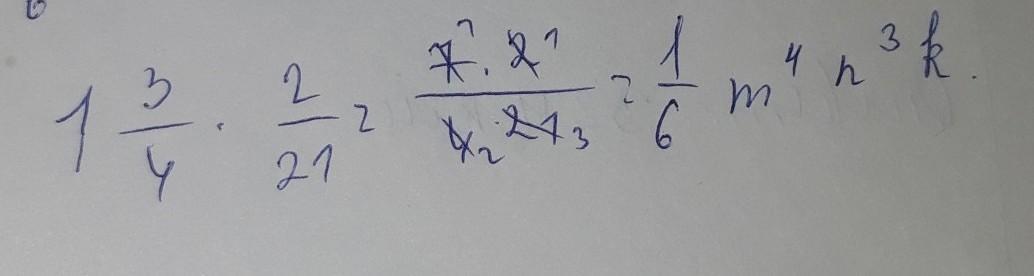 1 3/4 · 2/21 = 7¹ · 2¹ / 4₂ · 21₃ = 1/6 m⁴ n³ k.